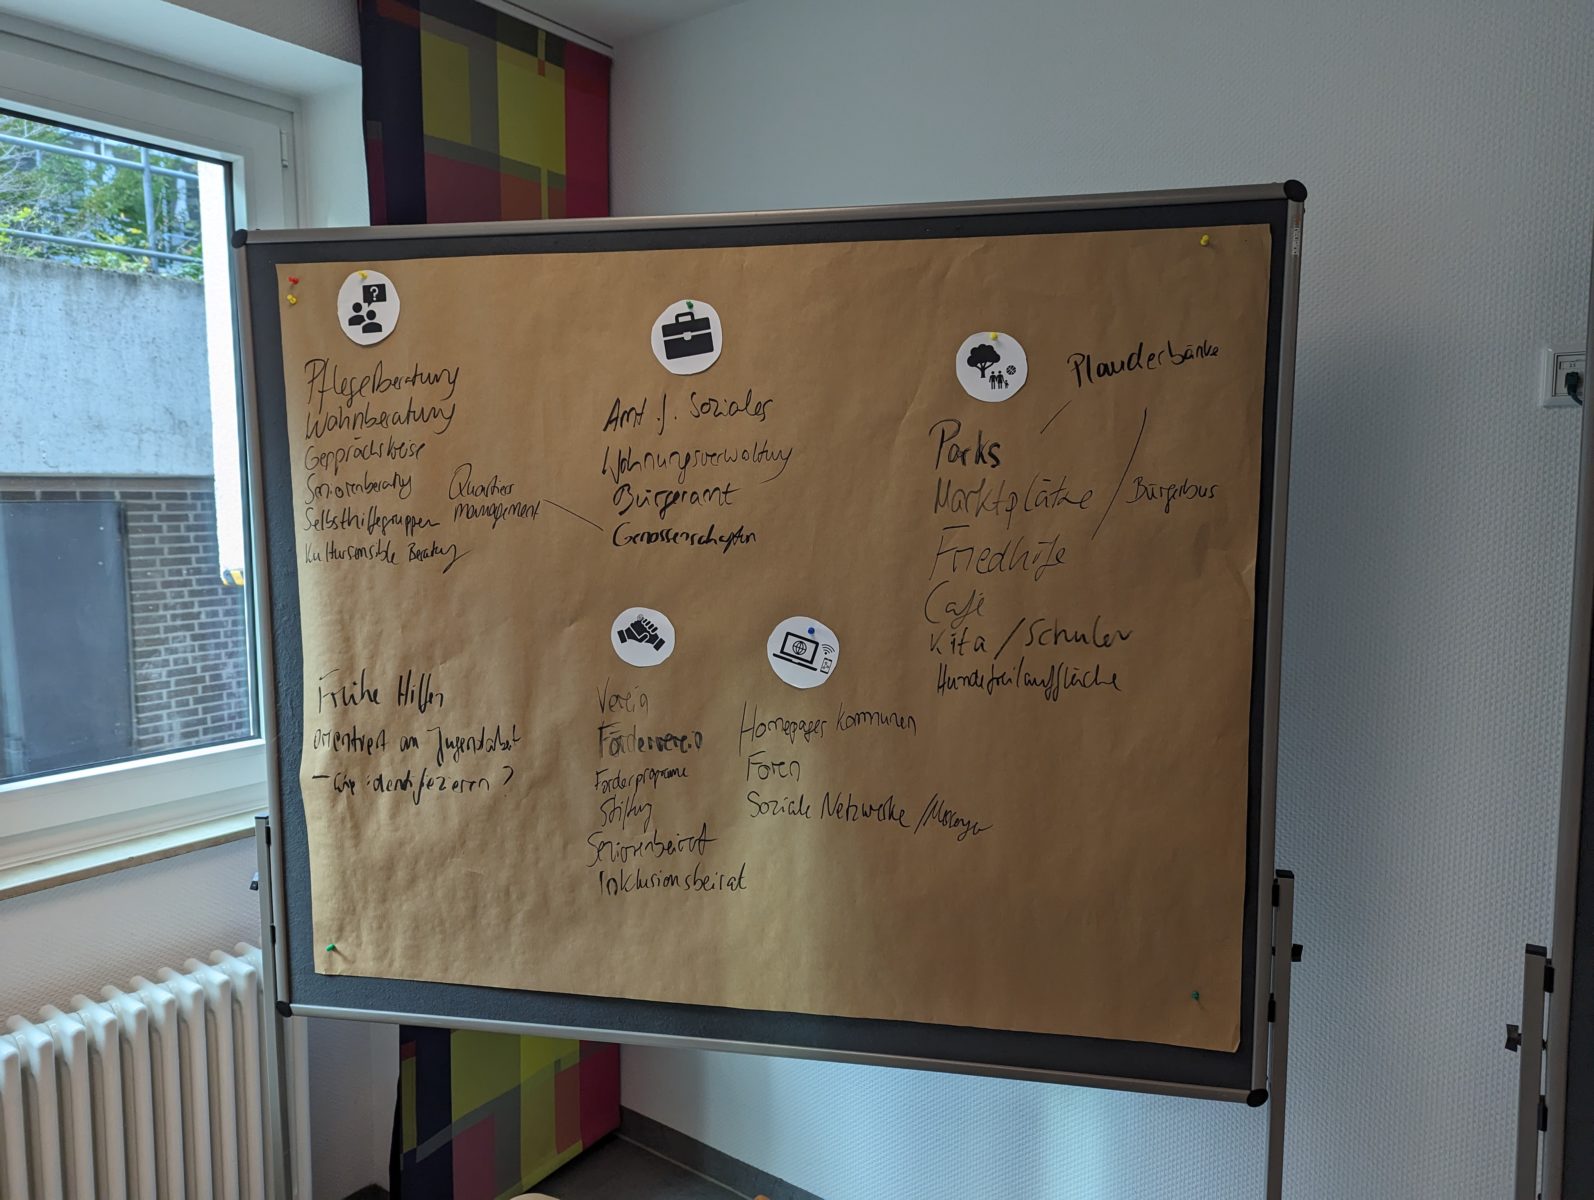 ?
Pflegeberatung
Wohnberatung
Gesprächskreise
Seniorenberatung
Selbsthilfegruppen
Kultursensible Beratung
Quartiers
management
Amt f. Soziales
Wohnungsverwaltung
Bürgeramt
Genossenschaften
Plauderbänke
Parks
Marktplätze
Bürgerbus
Friedhöfe
Café
Kita / Schulen
Hundefreilauffläche
Frühe Hilfen
orientiert an Jugendarbeit
– wie identifizieren ?
Verein
Förderverein
Förderprogramme
Stiftung
Seniorenbeirat
Inklusionsbeirat
Homepages Kommunen
Foren
Soziale Netzwerke / Messenger